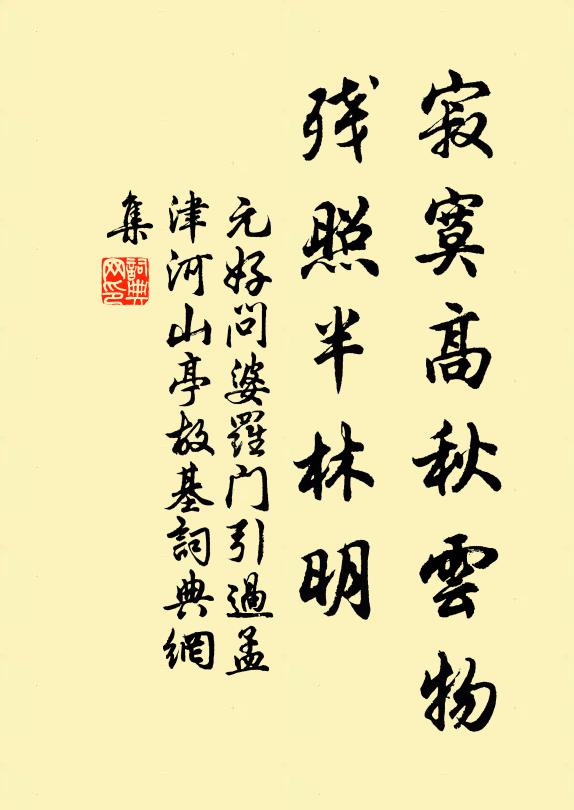 寂寞高秋雲物
残照半林明
元好问婆羅门引過孟
津河山亭故基詞典網
集
詞典
网印